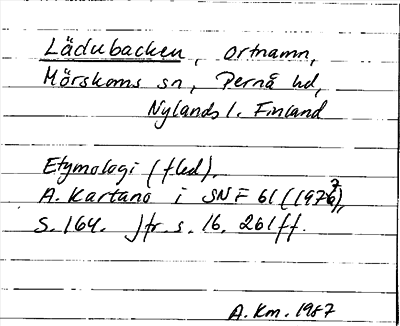 Lädubacken, ortnamn,
Mörskoms sn, Pernå hd,
Nylands l. Finland
Etymologi (fled).
A. Kartano i SNF 61 (1976?),
S. 164. Jfr s. 16, 261 ff.
A. Km. 1987